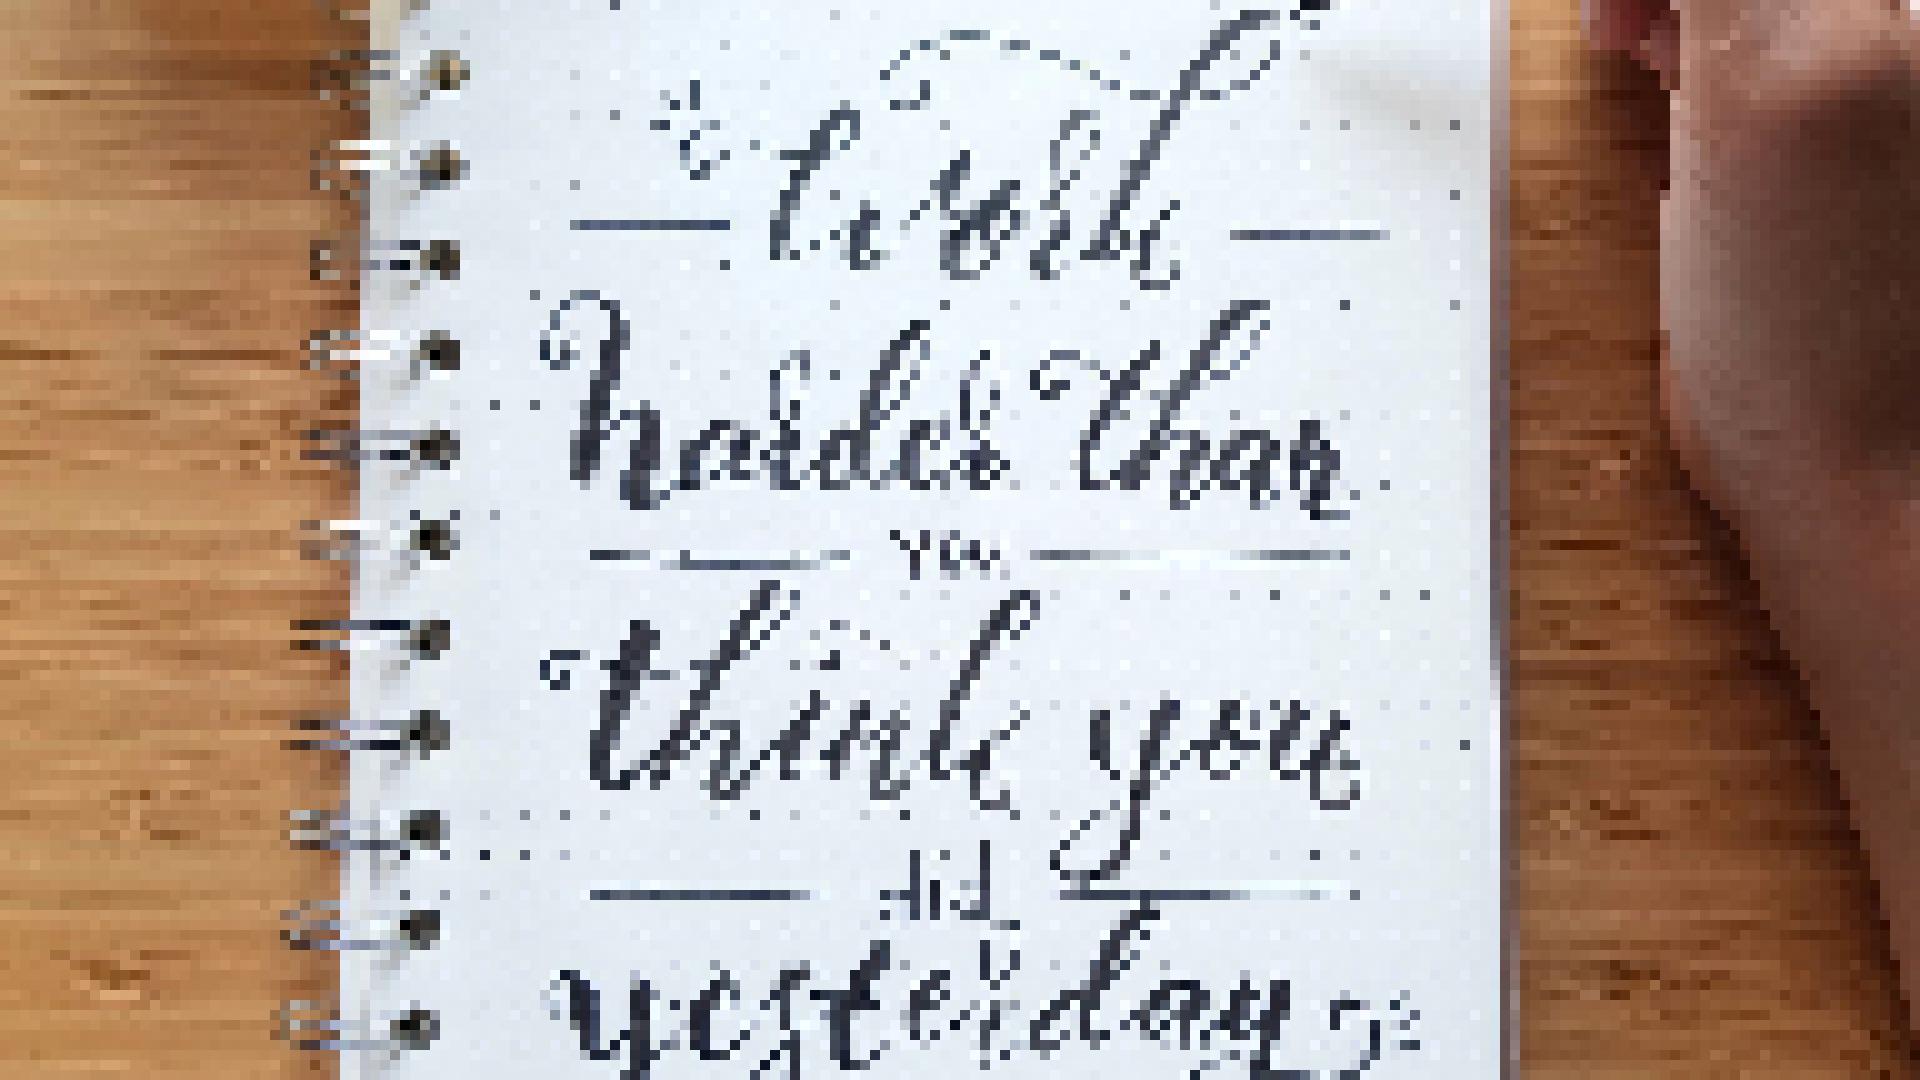 Work
harder than
you
think you
did
yesterday